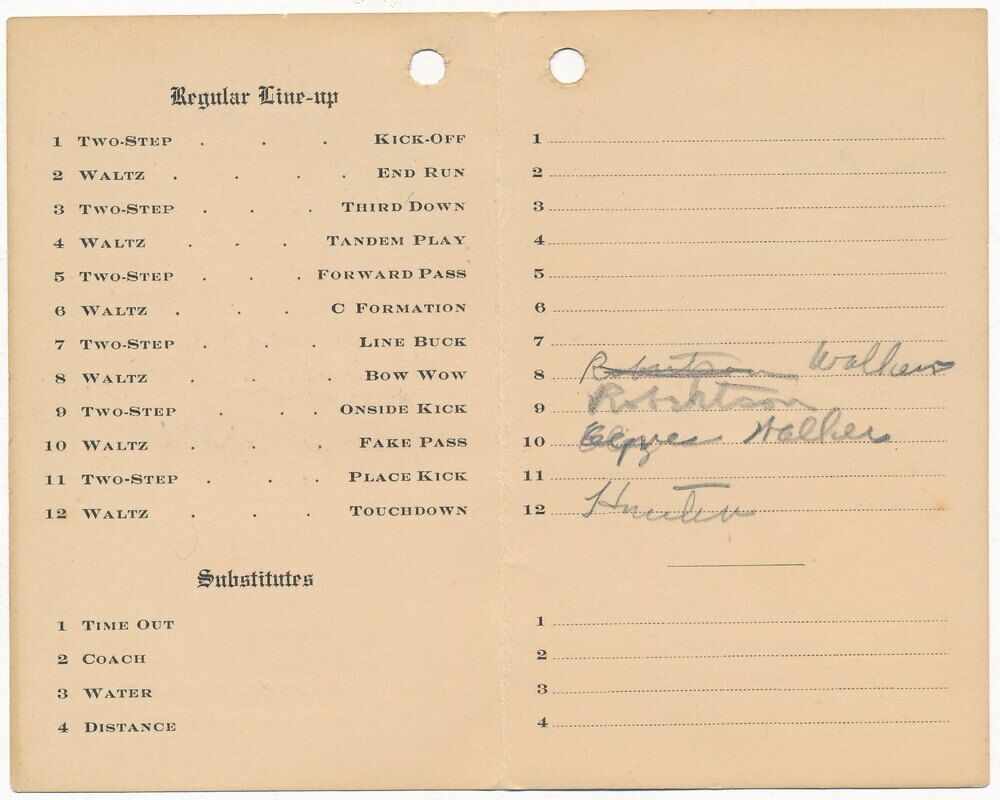 Regular Line-up
1 Two-Step . . . Kick-Off
2 Waltz . . . . End Run
3 Two-Step . . . Third Down
4 Waltz . . . Tandem Play
5 Two-Step . . . Forward Pass
6 Waltz . . . C Formation
7 Two-Step . . . Line Buck
8 Waltz . . . Bow Wow
9 Two-Step . . . Onside Kick
10 Waltz . . . Fake Pass
11 Two-Step . . . Place Kick
12 Waltz . . . Touchdown
Substitutes
1 Time Out
2 Coach
3 Water
4 Distance
1
2
3
4
5
6
7
8 Robertson Walker
9 Robertson
10 Walker
11
12 Hunter
1
2
3
4